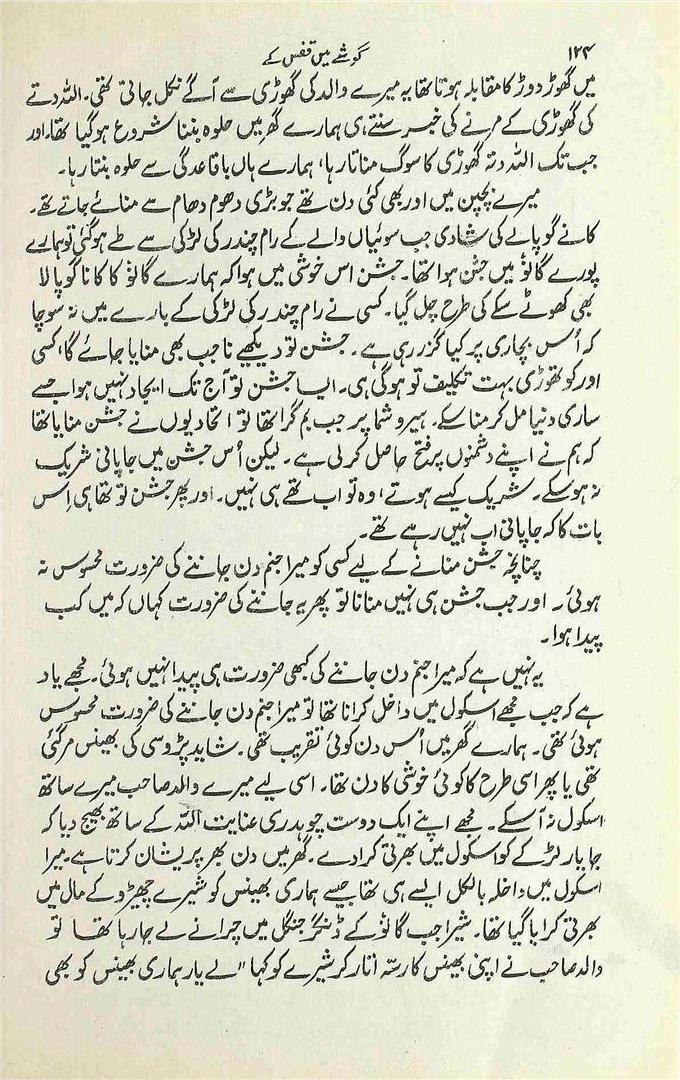 ۱۲۴
گوشے میں قفس کے
میں گھوڑ دوڑ کا مقابلہ ہوتا تھا یہ میرے والد کی گھوڑی سے آگے نکل جاتی تھی۔ اللہ دتے
کی گھوڑی کے مرنے کی خبر سنتے ہی ہمارے گھر میں حلوہ بننا شروع ہوگیا تھا۔ اور
جب تک اللہ دتہ گھوڑی کا سوگ مناتا رہا، ہمارے ہاں باقاعدگی سے حلوہ بنتا رہا۔
میرے بچپن میں اور بھی کئی دن تھے جو بڑی دھوم دھام سے منائے جاتے تھے۔
کانے گوپالے کی شادی جب سوئیاں والے کے رام چندر کی لڑکی سے طے ہوگئی تو ہمارے
پورے گاؤں میں جشن ہوا تھا۔ جشن اس خوشی میں ہوا کہ ہمارے گاؤں کا کانا گوپالا
بھی کھوٹے سکے کی طرح چل گیا۔ کسی نے رام چندر کی لڑکی کے بارے میں نہ سوچا
کہ اُس بچاری پر کیا گزر رہی ہے۔ جشن تو دیکھیے نا جب بھی منایا جائے گا، کسی
اور کو تھوڑی بہت تکلیف تو ہوگی ہی۔ ایسا جشن تو آج تک ایجاد نہیں ہوا جسے
ساری دنیا مل کر مناسکے۔ ہیروشما پر جب بم گرا تھا تو اتحادیوں نے جشن منایا تھا
کہ ہم نے اپنے دشمنوں پر فتح حاصل کر لی ہے۔ لیکن اُس جشن میں جاپانی شریک
نہ ہوسکے۔ شریک کیسے ہوتے، وہ تو اب تھے ہی نہیں۔ اور پھر جشن تو تھا ہی اِس
بات کا کہ جاپانی اب نہیں رہے تھے۔
چنانچہ جشن منانے کے لیے کسی کو میرا جنم دن جاننے کی ضرورت محسوس نہ
ہوئی۔ اور جب جشن ہی نہیں منانا تو پھر یہ جاننے کی ضرورت کہاں کہ میں کب
پیدا ہوا۔
یہ نہیں ہے کہ میرا جنم دن جاننے کی کبھی ضرورت ہی پیدا نہیں ہوئی۔ مجھے یاد
ہے کہ جب مجھے اسکول میں داخل کرانا تھا تو میرا جنم دن جاننے کی ضرورت محسوس
ہوئی تھی۔ ہمارے گھر میں اُس دن کوئی تقریب تھی۔ شاید پڑوسی کی بھینس مرگئی
تھی یا پھر اسی طرح کا کوئی خوشی کا دن تھا۔ اسی لیے میرے والد صاحب میرے ساتھ
اسکول نہ آسکے۔ مجھے اپنے ایک دوست چوہدری عنایت اللہ کے ساتھ بھیج دیا کہ
جا یار لڑکے کو اسکول میں بھرتی کرا دے۔ گھر میں دن بھر پریشان کرتا ہے۔ میرا
اسکول میں داخلہ بالکل ایسے ہی تھا جیسے ہماری بھینس کو شیرے چھیڑو کے مال میں
بھرتی کرایا گیا تھا۔ شیرا جب گاؤں کے ڈنگر جنگل میں چرانے لے جا رہا تھا تو
والد صاحب نے اپنی بھینس کا رسّہ اتار کر شیرے کو کہا "لے یار ہماری بھینس کو بھی